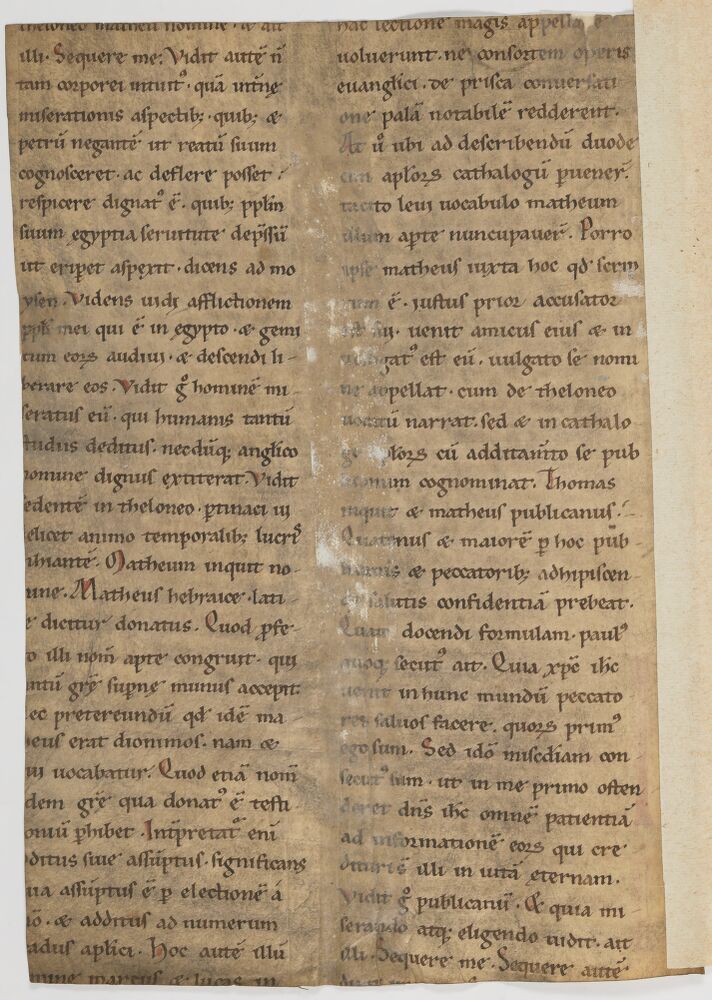 theloneo matheū nomine. & ait
illi. Sequere me. Vidit autē ñ
tam corporei intuitꝰ. quā int̄nę
miserationis aspectib;. quib; &
petrū negantē ut reatū suum
cognosceret. ac deflere posset.
respicere dignatꝰ ē. quib; pplm̄
suum egyptia seruitute dep̄ssū
ut erip̄et aspexit. dicens ad mo
ysen. Videns uidi afflictionem
ppli mei qui ē in egypto. & gemi
tum eoꝝ audiui. & descendi li-
berare eos. Vidit g̊ hominē mi-
seratus eū. qui humanis tantū
studiis deditus. necdūq; anglico
nomine dignus extiterat. Vidit
sedentē in theloneo. ptinaci ui
delicet animo temporalib; lucris
inhiantē. Matheum inquit no-
mine. Matheus hebraice. lati-
e dicitur donatus. Quod pfe-
o illi nom̄ apte congruit. qui
antū grē sup̄nę munus accepit.
ec pretereundū qd̄ idē ma-
heus erat dionimos. nam &
ui uocabatur. Quod etiā nom̄
dem grē qua donatꝰ ē testi-
oniū phibet. Int̄pretatꝰ eni
dditus siue assūptus. significans
ua assūptus ē p electionē á
nō. & additus ad numerum
adus aplici. Hoc autē illū
mine marcus & lucas in
hac lectione magis appellare
uoluerunt. ne consortem operis
euanglici. de prisca conuersati
one palā notabilē redderent.
At ů ubi ad describendū duode
cim aploꝝ cathalogū puener̄.
tacito leui uocabulo matheum
illum apte nuncupauer̄. Porro
ipse matheus iuxta hoc qd̄ scrip
tum ē. iustus prior accusator
est sui. uenit amicus eius & in
uestigatꝰ est eū. uulgato se nomi
ne appellat. cum de theloneo
uocatū narrat. sed & in cathalo
go aploꝝ cū additam̄to se pub
licanum cognominat. Thomas
inquit & matheus publicanus.
Quatenus & maiorē p hoc pub-
licanis & peccatorib; adhipiscen-
dę salutis confidentiā prebeat.
Quam docendi formulam. paulꝰ
quoq; secutꝰ ait. Quia xp̄c ih̄c
uenit in hunc mundū peccato
res saluos facere. quoꝝ primꝰ
ego sum. Sed idō misc̄diam con
secutꝰ sum. ut in me primo osten
deret dn̄s ih̄c omnē patientiā
ad informationē eoꝝ qui cre
dituri s̄ illi in uitā ęternam.
Vidit g̊ publicanū. & quia mi
serando atq; eligendo uidit. ait
illi. Sequere me. Sequere autē